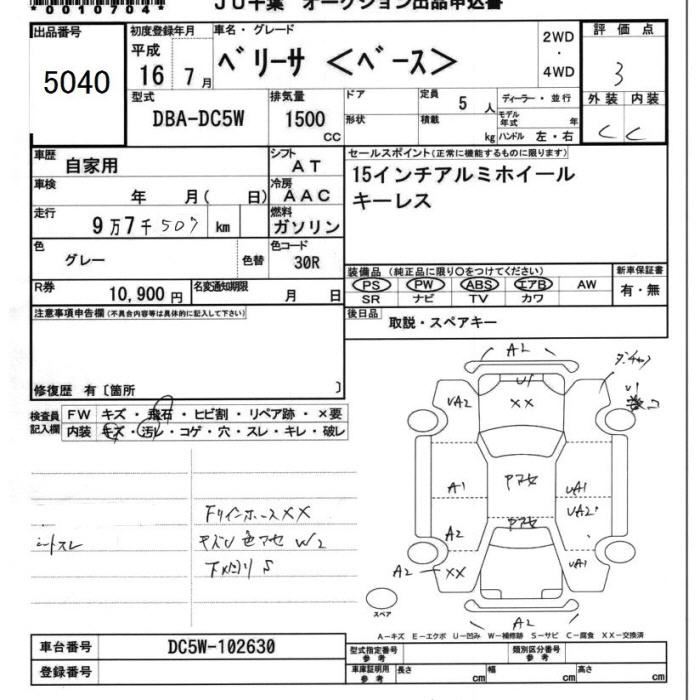 *0010704*
JU千葉 オークション出品申込書
出品番号
5040
初度登録年月
平成
16 7月
車名・グレード
ベリーサ <ベース>
2WD
・
4WD
評価点
3
外装 内装
C C
型式
DBA-DC5W
排気量
1500
CC
ドア
形状
定員
5 人
積載
kg
ディーラー・並行
モデル年式 年
ハンドル 左・右
車歴
自家用
シフト
AT
セールスポイント(正常に機能するものに限ります)
15インチアルミホイール
キーレス
車検
年 月( 日)
冷房
AAC
走行
9万7千507 km
燃料
ガソリン
色
グレー
色替
色コード
30R
R券
10,900円
名変通知期限
月 日
装備品(純正品に限り○をつけてください)
PS PW ABS エアB AW
SR ナビ TV カワ
新車保証書
有・無
後日品
取説・スペアキー
注意事項申告欄(不具合内容等は具体的に記入して下さい)
修復歴 有〔箇所 〕
検査員
記入欄
FW キズ・飛石・ヒビ割・リペア跡・×要
内装 キズ・汚レ・コゲ・穴・スレ・キレ・破レ
A2
U1
UA2
XX
A1
A2
A2 XX
UA1
UA2
UA1
A2
スペア
FリインホースXX
W2
S
A-キズ E-エクボ U-凹み W-補修跡 S-サビ C-腐食 XX-交換済
車台番号
DC5W-102630
登録番号
型式指定番号
参考
類別区分番号
参考
車庫証明用
参考
長さ cm
幅 cm
高さ cm